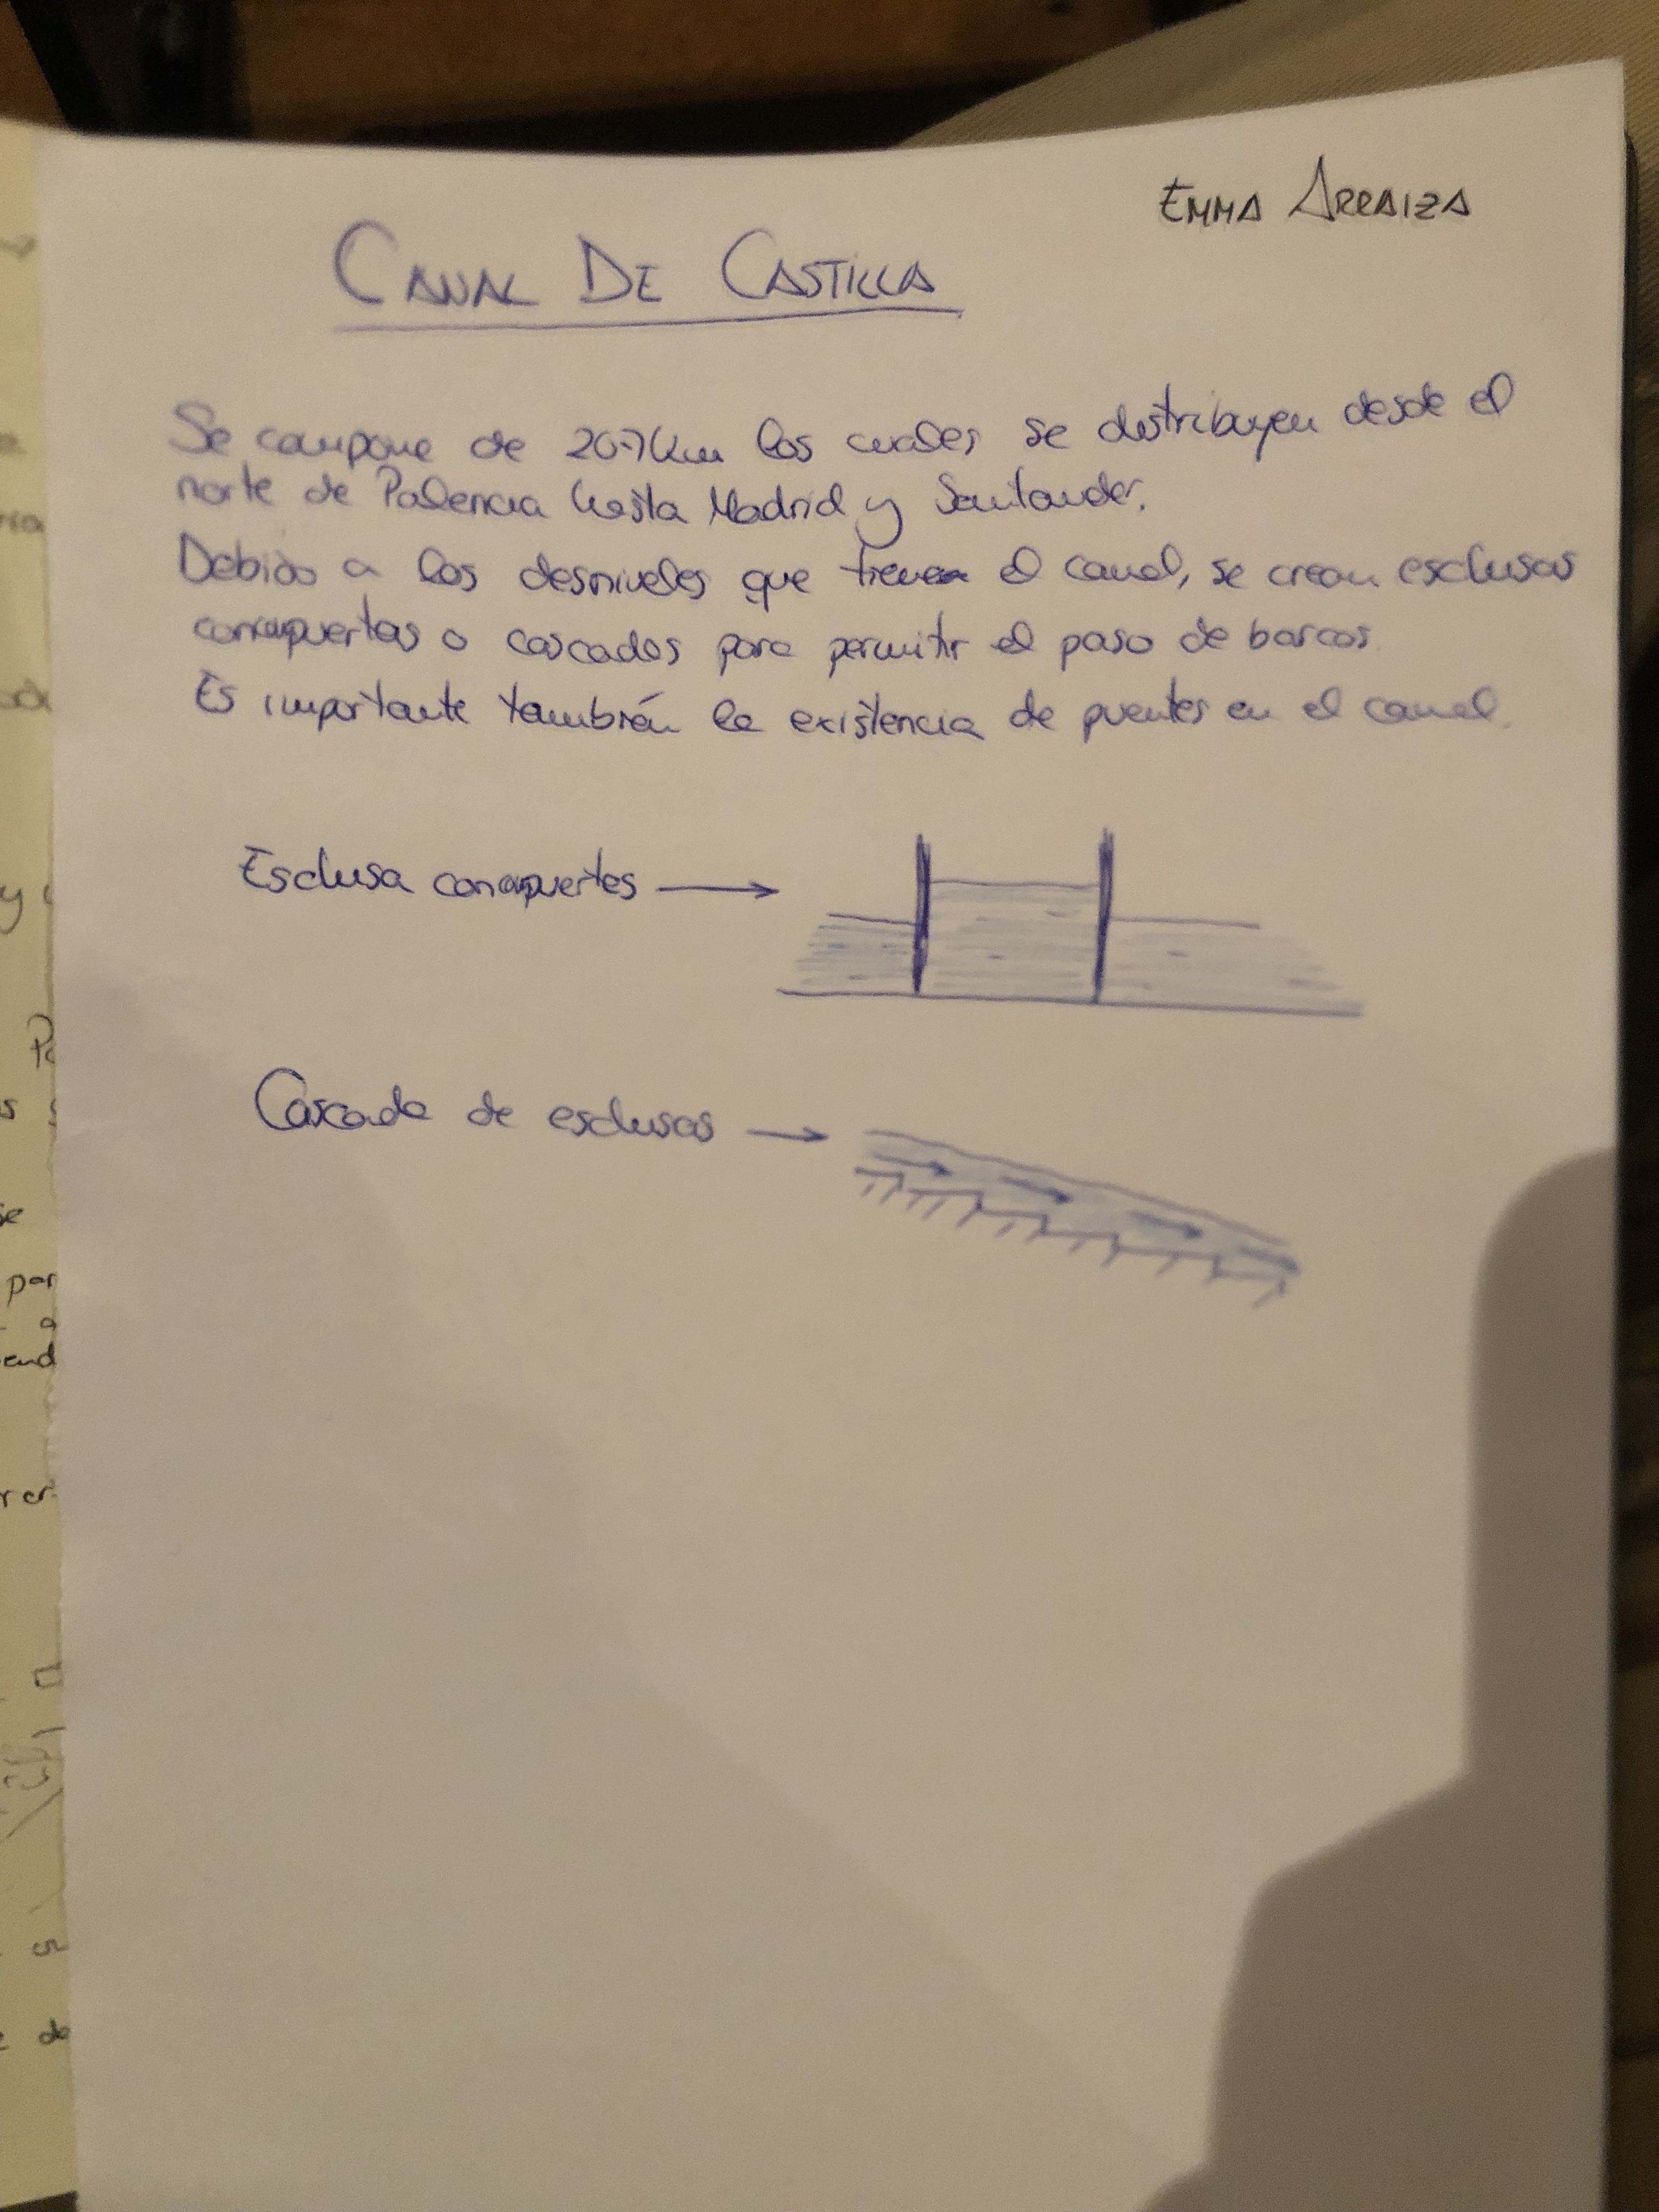 EMMA ARRAIZA
CANAL DE CASTILLA
Se compone de 207km los cuales se distribuyen desde el
norte de Palencia hasta Madrid y Santander.
Debido a los desniveles que tiene el canal, se crean esclusas
compuertas o cascadas para permitir el paso de barcos.
Es importante también la existencia de puentes en el canal.
Esclusa compuertas →
Cascada de esclusas →
y
se
por
a
de